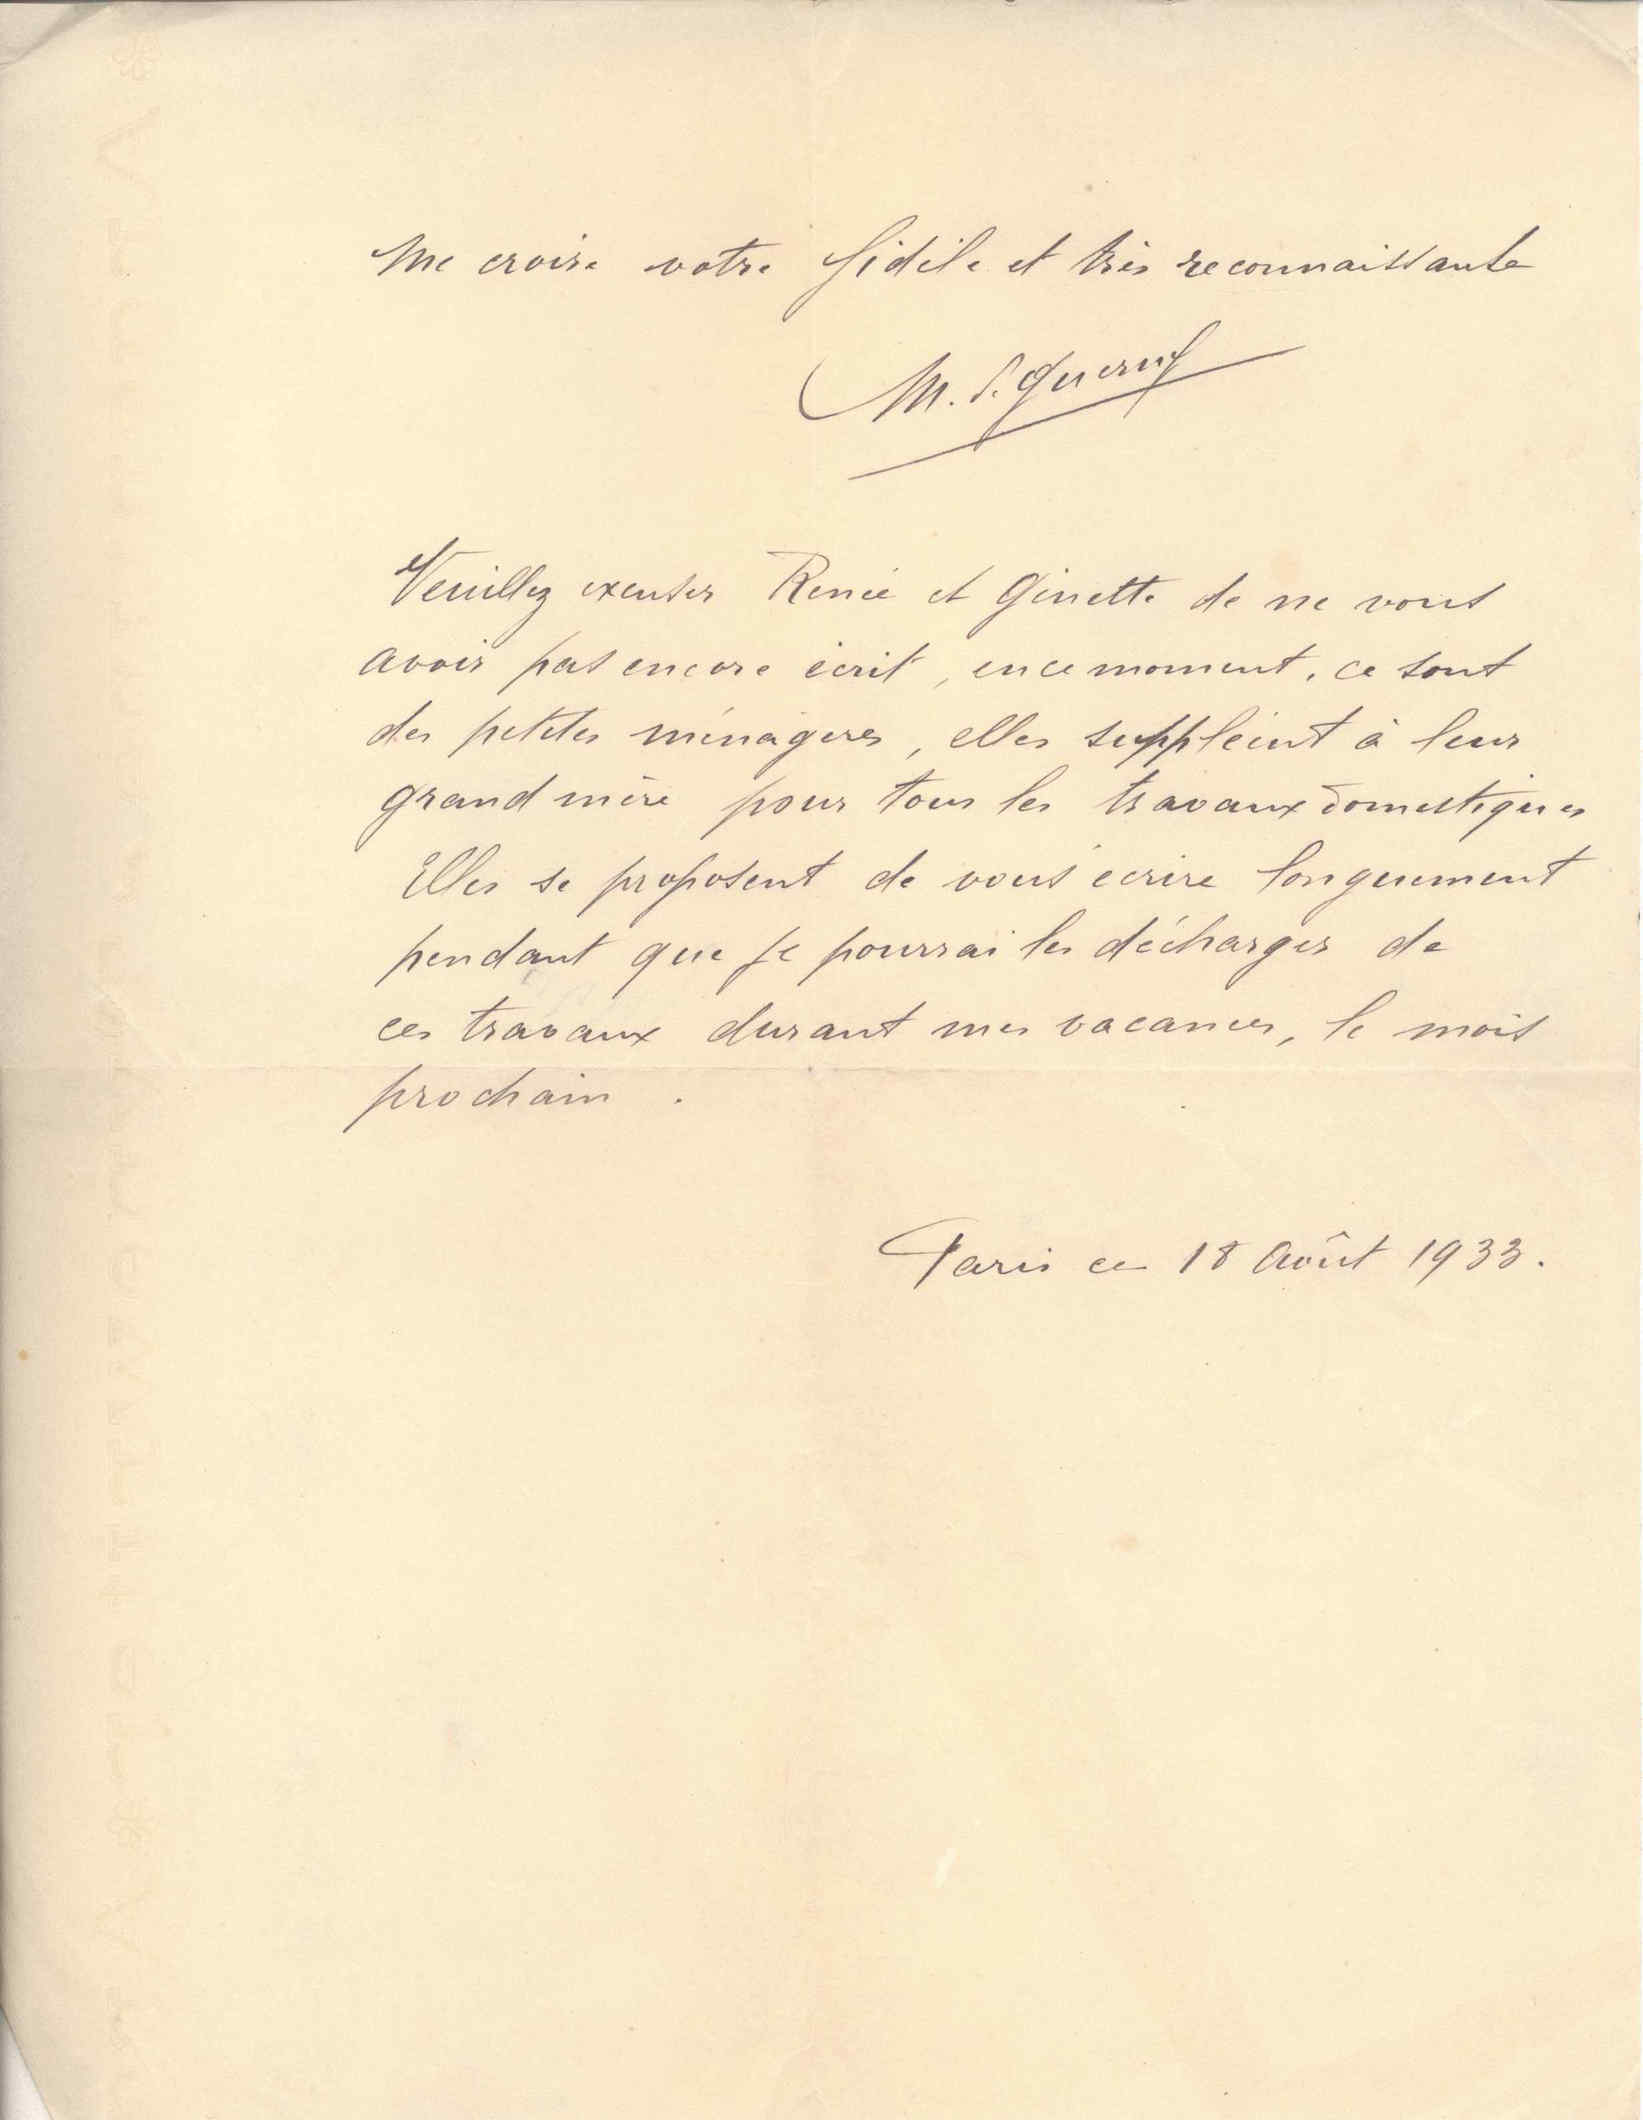 me croire votre fidèle et très reconnaissante
M. 
Veuillez excuser Renée et Ginette de ne vous
avoir pas encore écrit, en ce moment, ce sont
des petites ménagères, elles suppléent à leur
grand mère pour tous les travaux domestiques
Elles se proposent de vous écrire longuement
pendant que je pourrai les décharger de
ces travaux durant mes vacances, le mois
prochain.
Paris ce 18 Août 1933.